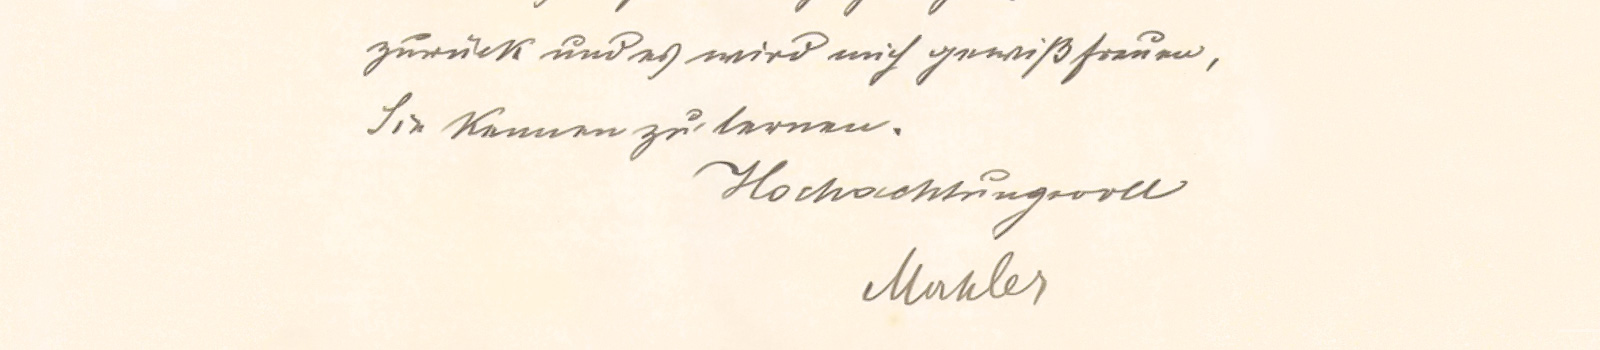 zurück und es wird mich gewiß freuen,
Sie kennen zu lernen.
Hochachtungsvoll
Mahler